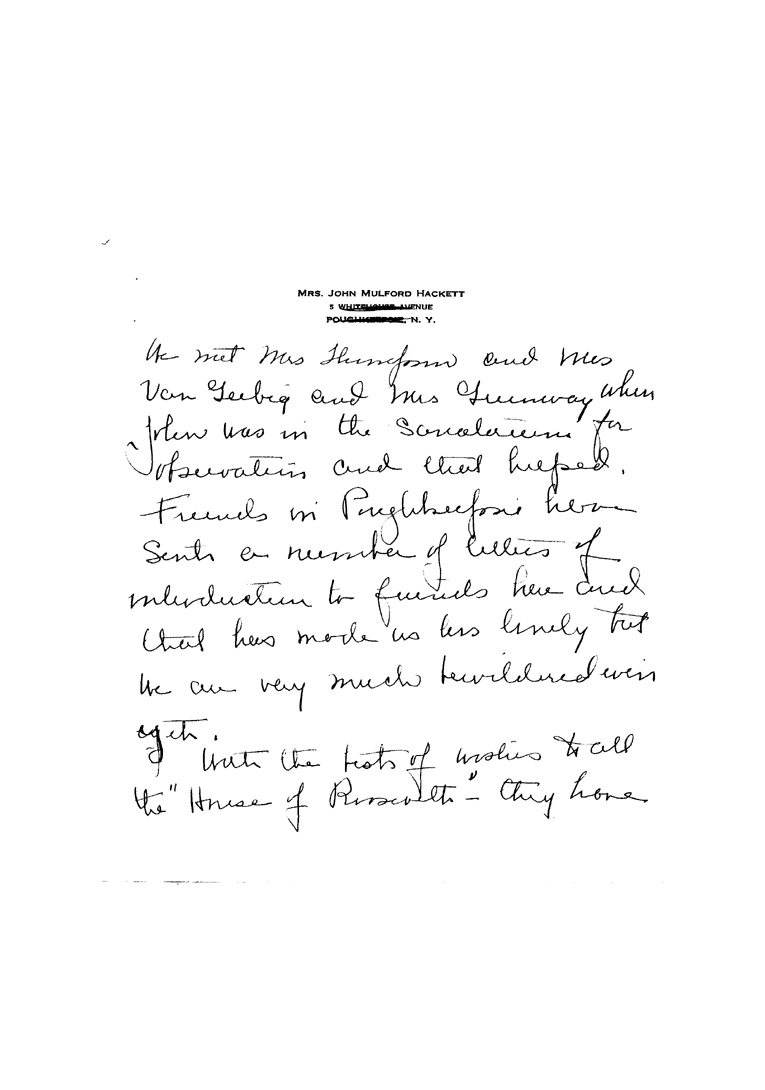 MRS. JOHN MULFORD HACKETT
5 WHITEHOUSE AVENUE
POUGHKEEPSIE, N. Y.
We met Mrs Thompson and Mrs
Van and Mrs Greenway when
John was in the Sanatarium for
observation and that helped.
Friends in Poughkeepsie have
sent a number of letters of
introduction to friends here and
that has made us less lonely but
we are very much bewildered even
yet.
With the best of wishes to all
the "House of Roosevelt" - they have